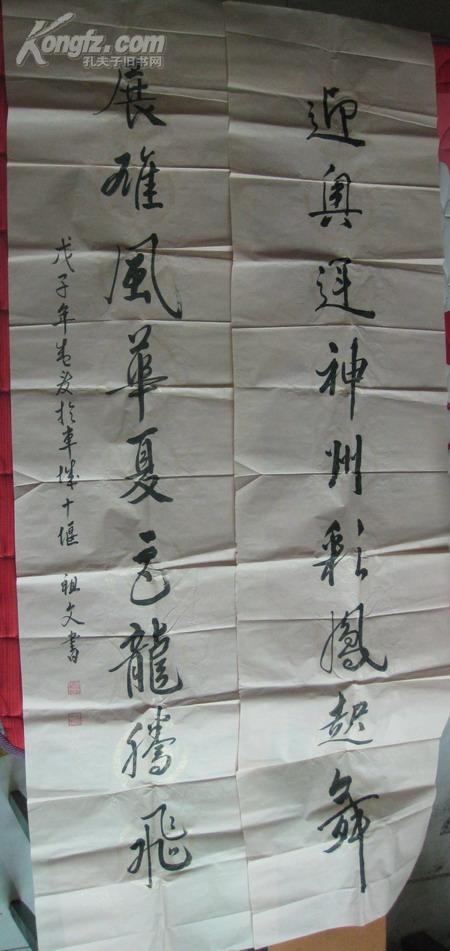 Kongfz.com
孔夫子旧书网
迎奥運神州彩鳳起舞
展雄風華夏巨龍騰飛
戊子年春於車城十堰 祖文書